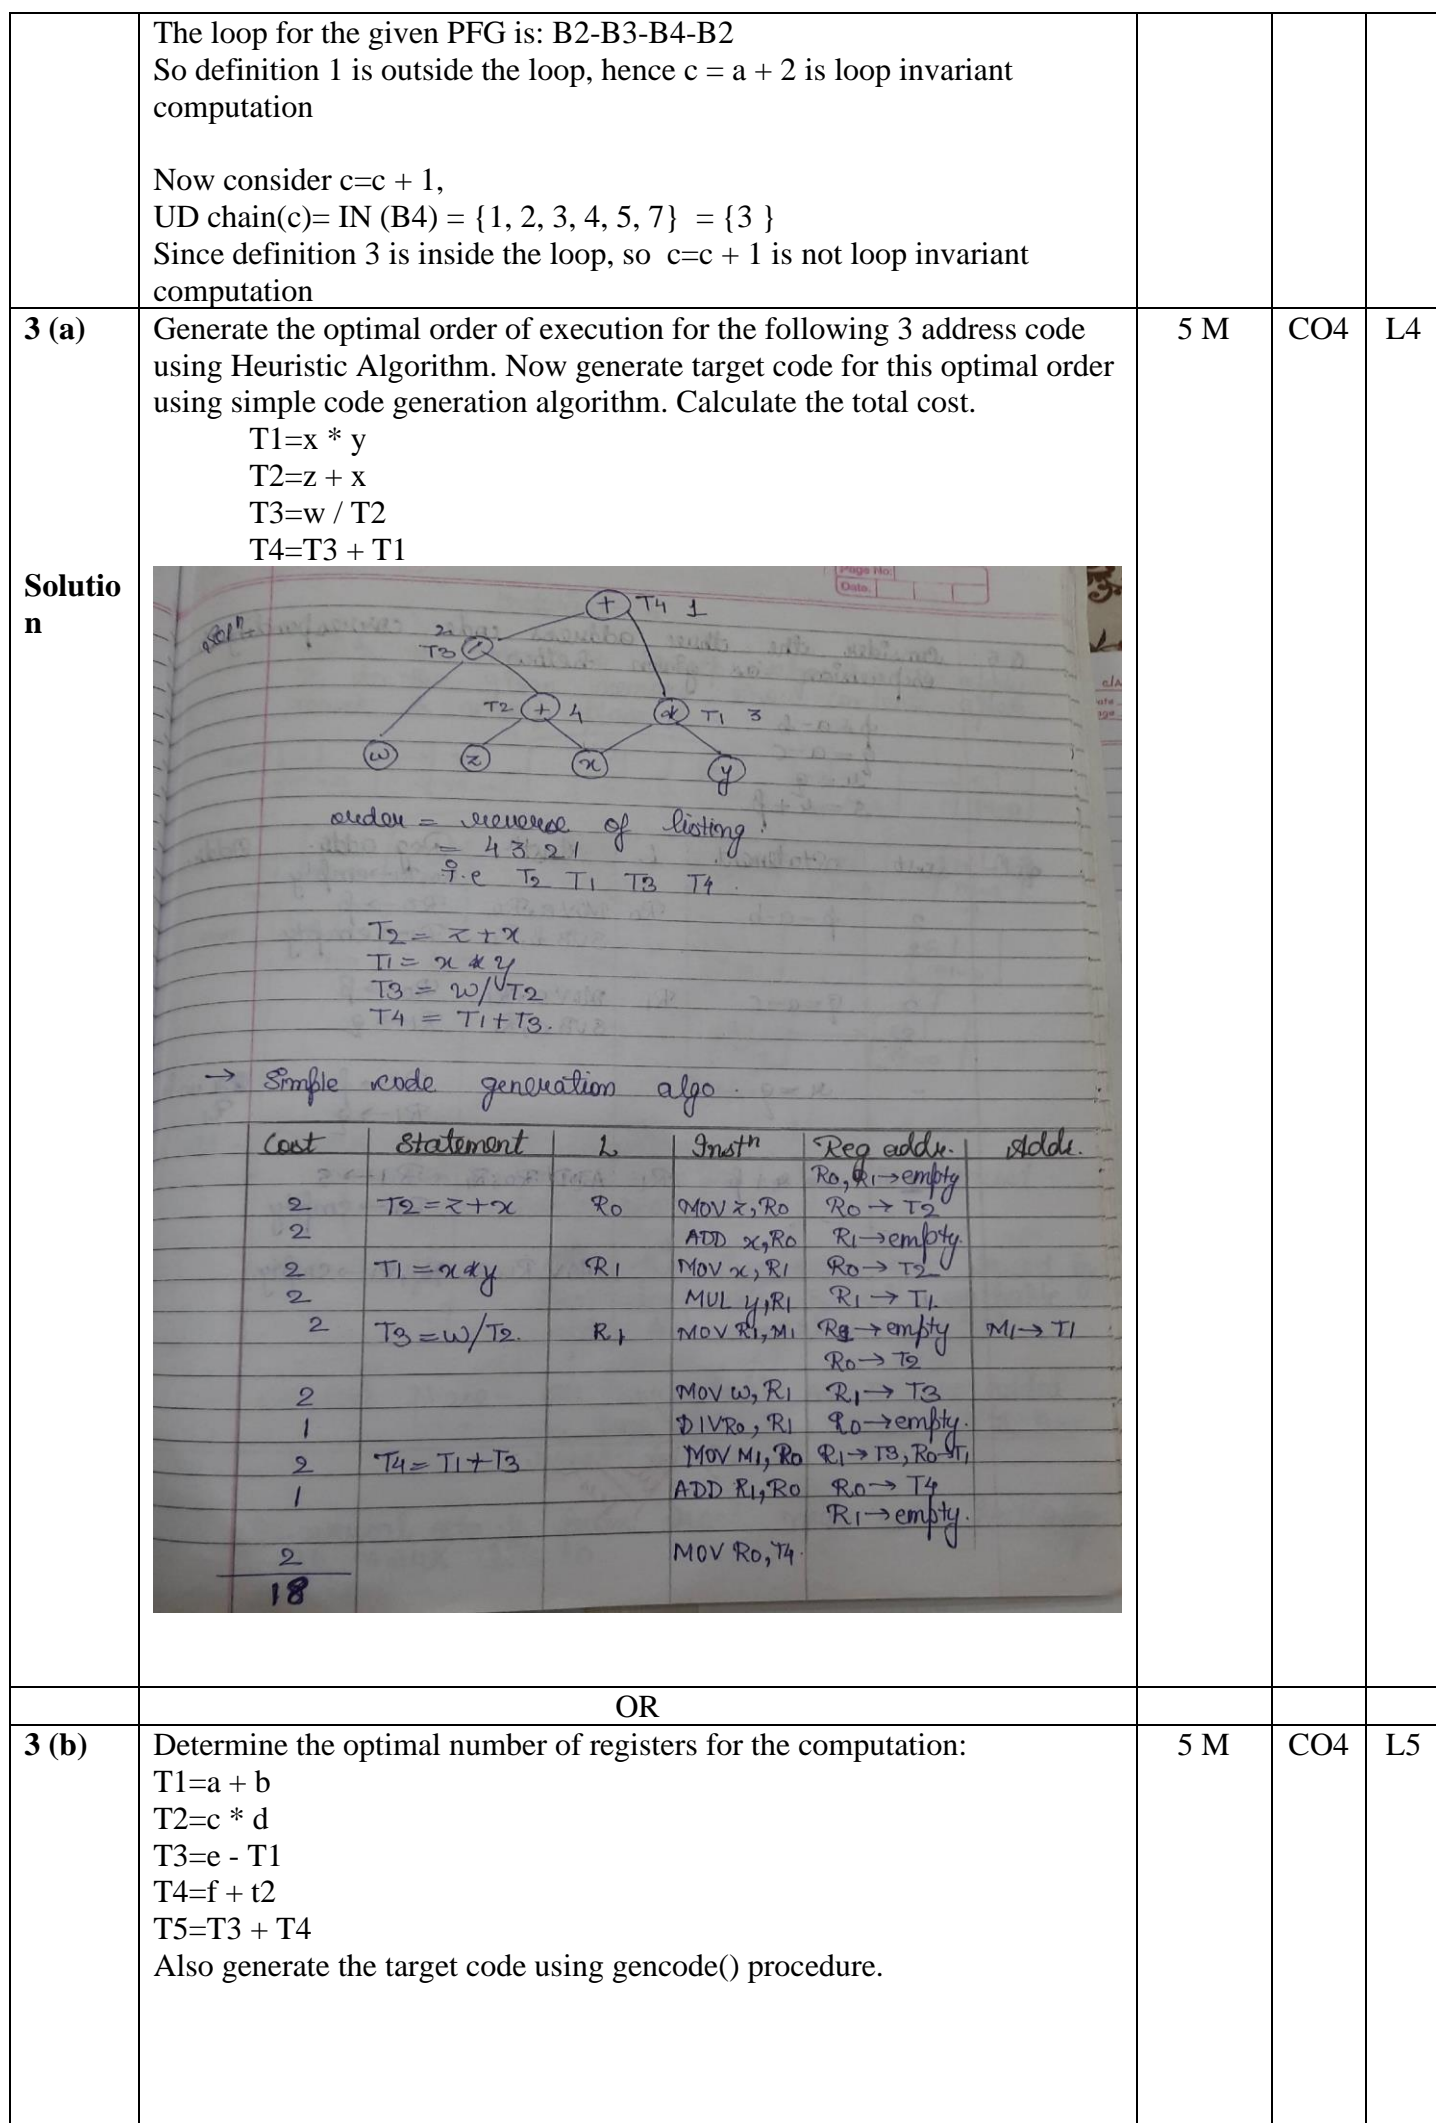 The loop for the given PFG is: B2-B3-B4-B2
So definition 1 is outside the loop, hence c = a + 2 is loop invariant
computation
Now consider c=c + 1,
UD chain(c)= IN (B4) = {1, 2, 3, 4, 5, 7} = {3 }
Since definition 3 is inside the loop, so c=c + 1 is not loop invariant
computation
3 (a) Generate the optimal order of execution for the following 3 address code 5 M CO4 L4
using Heuristic Algorithm. Now generate target code for this optimal order
using simple code generation algorithm. Calculate the total cost.
T1=x * y
T2=z + x
T3=w / T2
T4=T3 + T1
Solutio
n
Page No:
Date:
Solⁿ
+ T4 1
2
T3 /
T2 + 4 * T1 3
w z x y
order = reverse of listing.
= 4 3 2 1
i.e T2 T1 T3 T4.
T2 = z + x
T1 = x * y
T3 = w/T2
T4 = T1 + T3.
→ Simple code generation algo.
Cost Statement L Instⁿ Reg addr. Addr.
R0, R1→empty
2 T2=z+x R0 MOV z, R0 R0 → T2
2 ADD x, R0 R1→empty.
2 T1=x*y R1 MOV x, R1 R0 → T2
2 MUL y, R1 R1 → T1.
2 T3=w/T2. R1 MOV R1, M1 → empty M1→ T1
R0→ T2
2 MOV w, R1 R1→ T3
1 DIV R0, R1 R0→empty.
2 T4= T1+T3 MOV M1, R0 R1→T3, R0→T1
1 ADD R1, R0 R0→ T4
R1→empty.
2 MOV R0, T4.
18
OR
3 (b) Determine the optimal number of registers for the computation: 5 M CO4 L5
T1=a + b
T2=c * d
T3=e - T1
T4=f + t2
T5=T3 + T4
Also generate the target code using gencode() procedure.